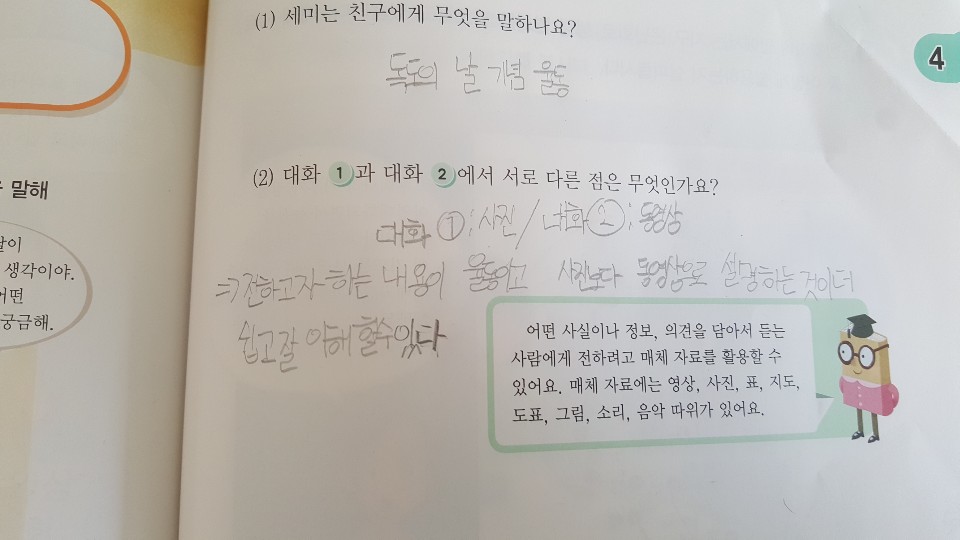 (1) 세미는 친구에게 무엇을 말하나요?
4
독도의 날 기념 율동
(2) 대화 1과 대화 2에서 서로 다른 점은 무엇인가요?
말해
대화 ① : 사진 / 대화 ② : 동영상
⇒ 전하고자 하는 내용이 율동이고 사진보다 동영상으로 설명하는 것이 더
쉽고 잘 이해 할수 있다
생각이야.
어떤
궁금해.
어떤 사실이나 정보, 의견을 담아서 듣는
사람에게 전하려고 매체 자료를 활용할 수
있어요. 매체 자료에는 영상, 사진, 표, 지도,
도표, 그림, 소리, 음악 따위가 있어요.